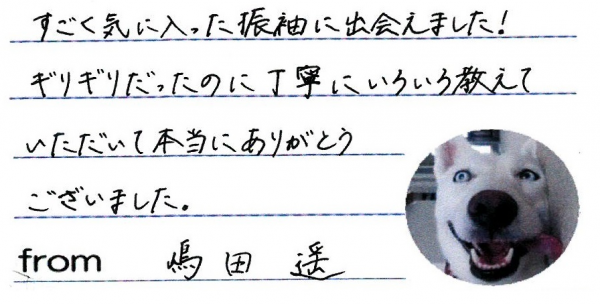 すごく気に入った振袖に出会えました!
ギリギリだったのに丁寧にいろいろ教えて
いただいて本当にありがとう
ございました。
from 嶋田 遥